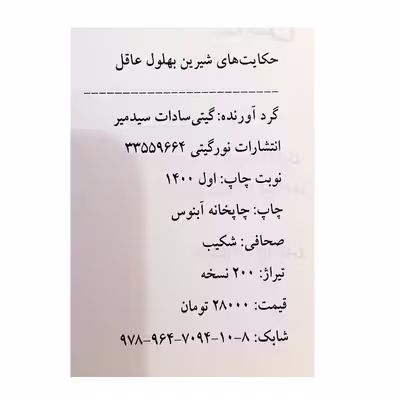 حکایت‌های شیرین بهلول عاقل
-------------------------
گرد آورنده: گیتی‌سادات سیدمیر
انتشارات نورگیتی ۳۳۵۵۹۶۶۴
نوبت چاپ: اول ۱۴۰۰
چاپ: چاپخانه آبنوس
صحافی: شکیب
تیراژ: ۲۰۰ نسخه
قیمت: ۲۸۰۰۰ تومان
شابک: ۸-۱۰-۷۰۹۴-۹۶۴-۹۷۸